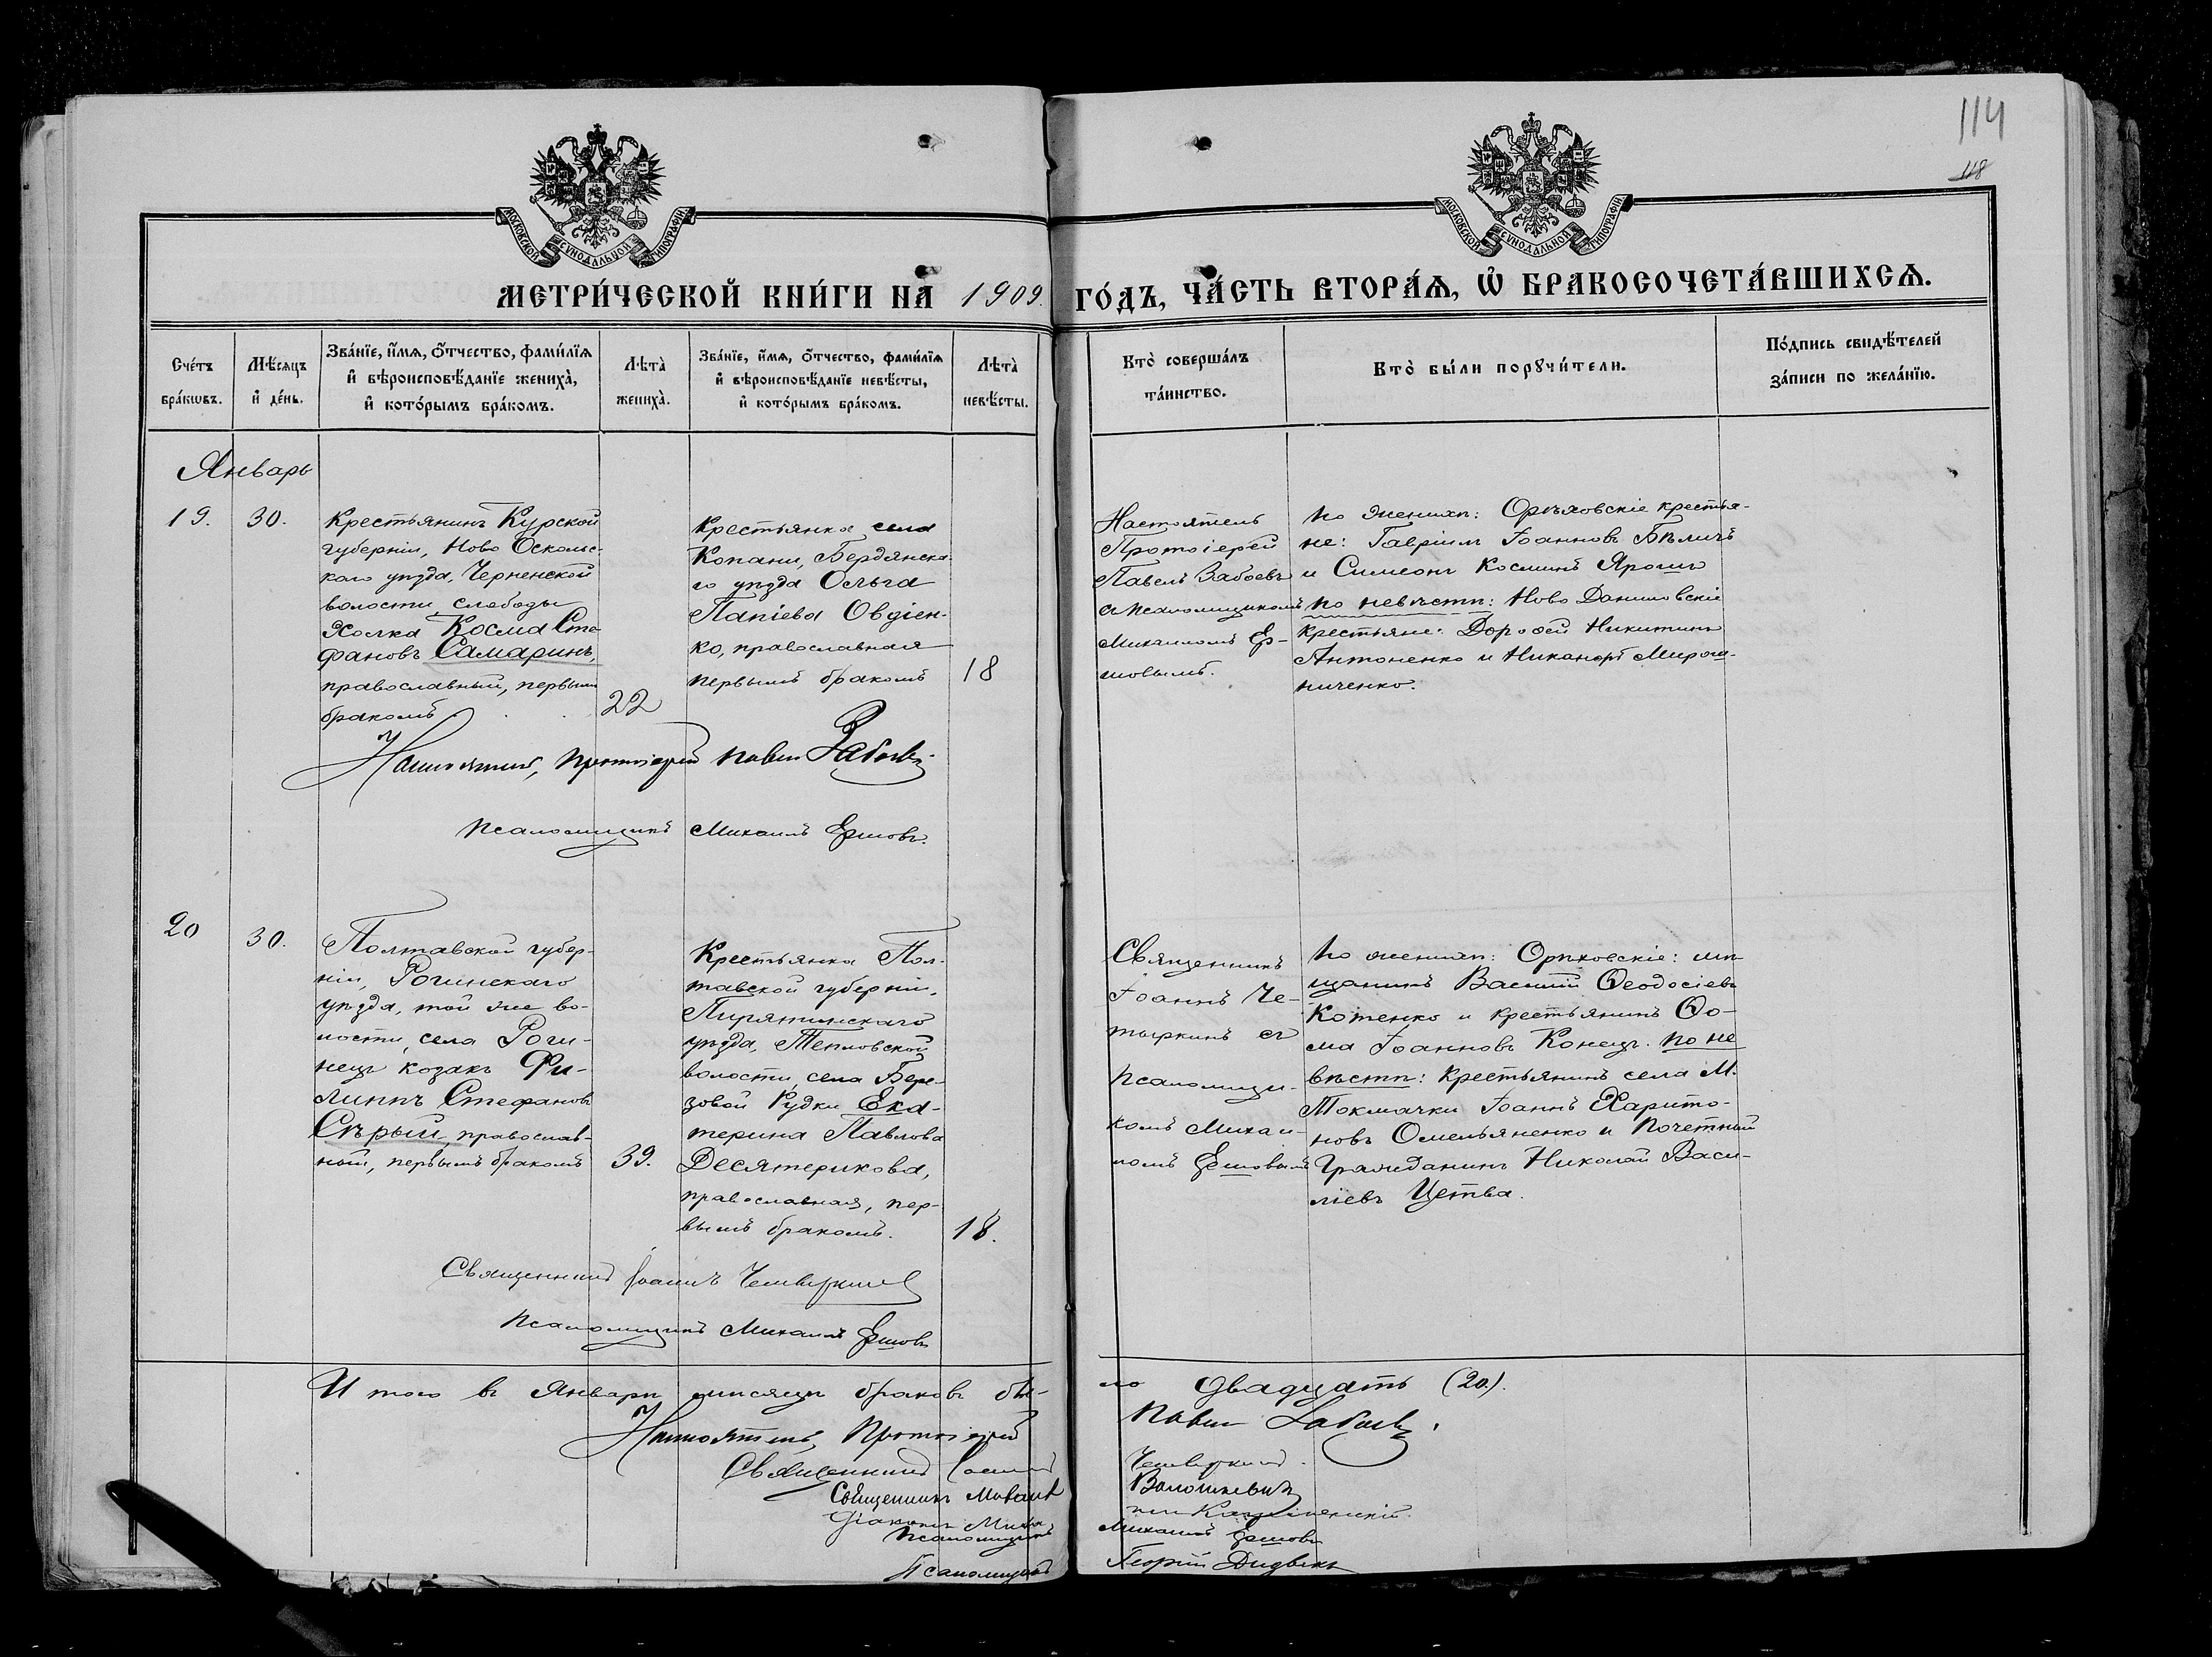 114
118
МОСКОВСКОЙ СѴНОДАЛЬНОЙ ТИПОГРАФІИ
МОСКОВСКОЙ СѴНОДАЛЬНОЙ ТИПОГРАФІИ
МЕТРИ́ЧЕСКОЙ КНИ́ГИ НА 1909. ГО́ДЪ, ЧА́СТЬ ВТОРА́Ѧ, Ѽ БРАКОСОЧЕТА́ВШИХСѦ.
Сче́тъ
бра́кѡвъ.
Мѣ́сѧцъ
и҆ де́нь.
Зва́нїе, и҆́мѧ, ѻ҆́тчество, фами́лїѧ
и҆ вѣроисповѣ́данїе жениха̀,
и҆ кото́рымъ бра́комъ.
Лѣта̀
жениха̀.
Зва́нїе, и҆́мѧ, ѻ҆́тчество, фами́лїѧ
и҆ вѣроисповѣ́данїе невѣ́сты,
и҆ кото́рымъ бра́комъ.
Лѣта̀
невѣ́сты.
Кто̀ соверша́лъ
та́инство.
Кто̀ бы́ли порꙋчи́тели.
По́дпись свидѣ́телей
за́писи по жела́нїю.
Январь
19.
30.
Крестьянинъ Курской
губерніи, Ново Осколь-
каго уѣзда, Черненской
волости, слободы
Холка Косма Сте-
фановъ Самаринъ,
православный, первымъ
бракомъ
22
Крестьянка села
Копани, Бердянска-
го уѣзда Ольга
Папіева Овдіен-
ко, православная
первымъ бракомъ
18
Настоятель
Протоіерей
Павелъ Забоевъ
съ псаломщикомъ
Михаиломъ Ер-
шовымъ.
по женихѣ: Орѣховскіе крестья-
не: Гавріилъ Іоанновъ Бѣличъ
и Симеонъ Косминъ Ярошъ
по невѣстѣ: Ново Даниловскіе
крестьяне: Дороѳей Никитинъ
Антоненко и Никаноръ Мирош-
ниченко.
Настоятель, Протоіерей Павелъ Забоевъ
Псаломщикъ Михаилъ Ершовъ.
20
30.
Полтавской губер-
ніи, Рогинскаго
уѣзда, той же во-
лости, села Роги-
нецъ козакъ Фи-
липпъ Стефановъ
Сѣрый, православ-
ный, первымъ бракомъ
39.
Крестьянка Пол-
тавской губерніи,
Пирятинскаго
уѣзда, Тепловской
волости, села Бере-
зовой Рудки Ека-
терина Павлова
Десятерикова,
православная, пер-
вымъ бракомъ.
18.
Священникъ
Іоаннъ Че-
тыркинъ съ
псаломщи-
комъ Михаи-
ломъ Ершовымъ
по женихѣ: Орѣховскіе: мѣ-
щанинъ Василій Ѳеодосіевъ
Котенко и крестьянинъ Ѳо-
ма Іоанновъ Конецъ. по не
вѣстѣ: крестьянинъ села М.
Токмачки Іоаннъ Харито-
новъ Омельяненко и Почетный
Гражданинъ Николай Васи-
ліевъ Цетва.
Священникъ Іоаннъ Четыркинъ
Псаломщикъ Михаилъ Ершовъ
Итого въ Январѣ мѣсяцѣ браковъ бы-
ло двадцать (20.).
Настоятель, Протоіерей Павелъ Забоевъ.
Священникъ Іоаннъ Четыркинъ.
Священникъ Волошкевичъ
Діаконъ
Псаломщикъ Михаилъ Ершовъ
Псаломщикъ Георгій